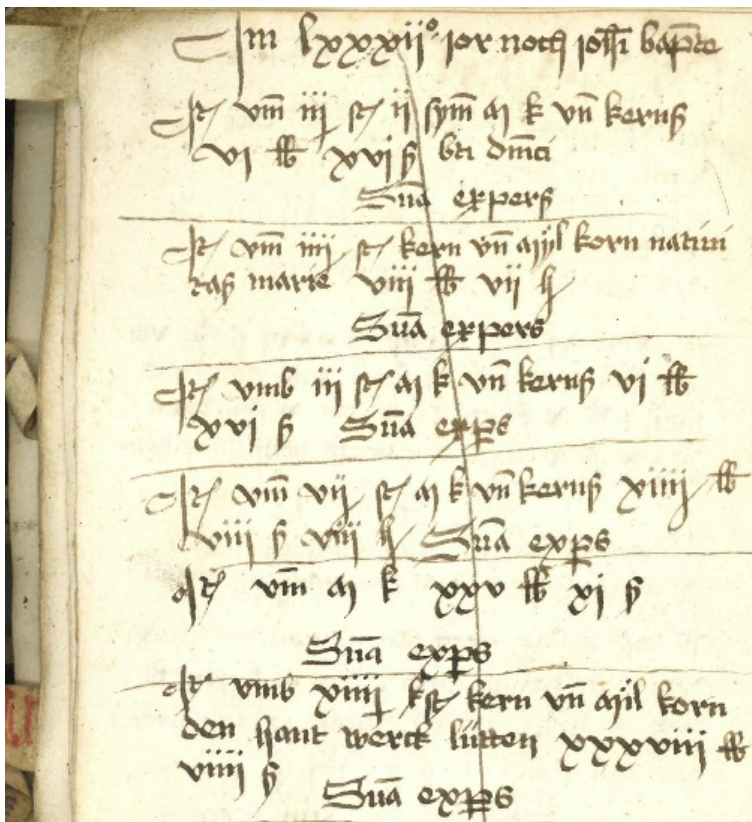 Im lxxxii° jor noch joħi bapte
It vm̄ iij st ij sym̄ m k vn̄ kernß
vi lb xvi ß bti dm̄ci
Sūa expers
It vm̄ iiij st kern vn̄ mÿl korn natiui
taß marie viii lb vii h
Sūa expers
It vmb iii st m k vn̄ kernß vi lb
xvi ß Sūa exps
It vm̄ vij st m k vn̄ kernß xiiii lb
viii ß viii h Sūa exps
It vm̄ m k xxv lb xj ß
Sūa exps
It vmb xiiij st kern vn̄ mÿl korn
den hant werck lütten xxxviii lb
viiii ß
Sūa exps